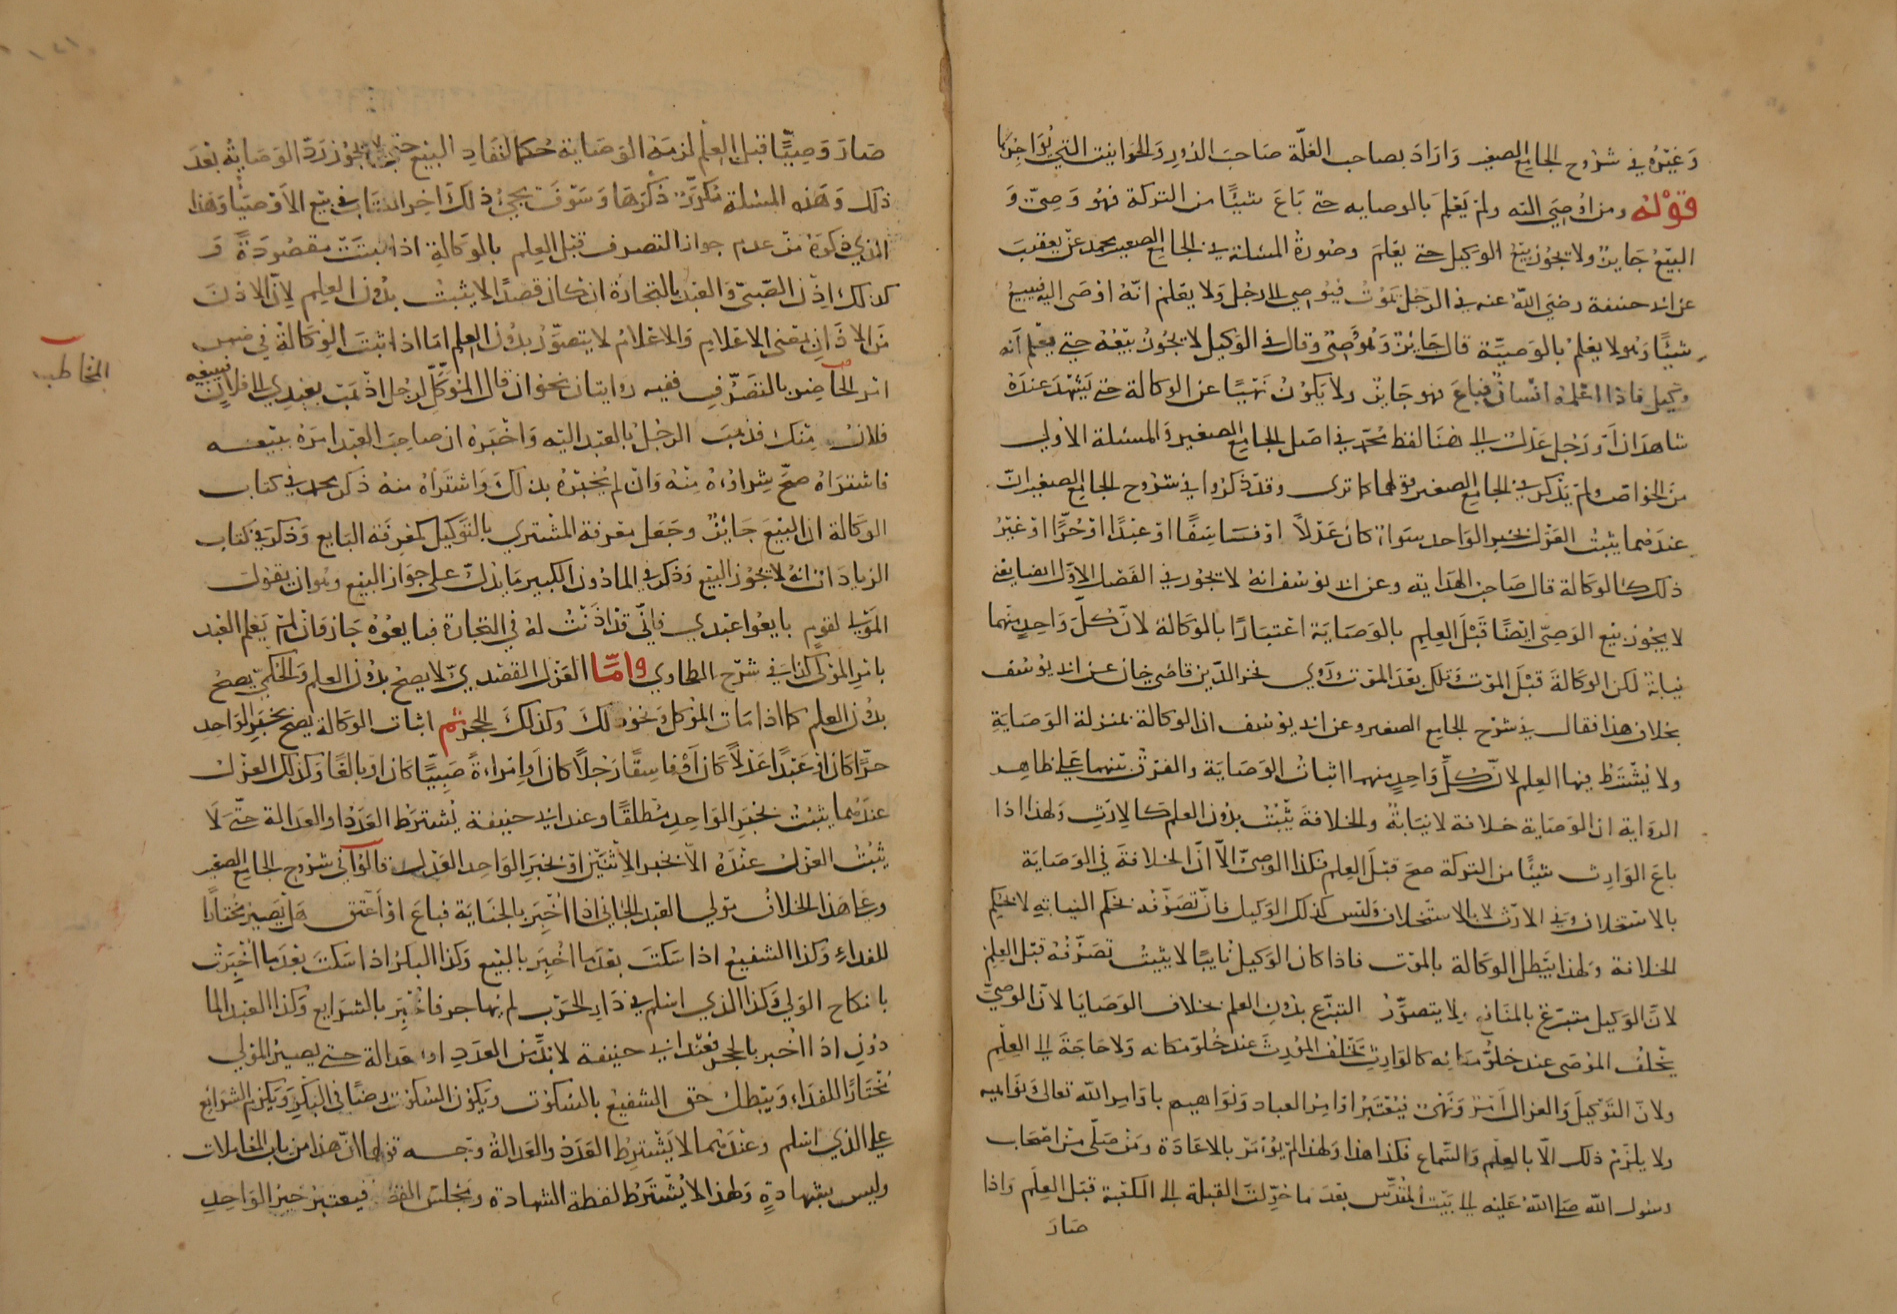 وَغَيْرُه في شروح الجامع الصغير وَارَادَ بصاحب الغلّة صَاحبَ الدُورِ وَالحَوانيت التي يُؤَاجِرُها
قوْله ومن اُوصيَ اليه ولم يَعْلم بالوصايه حتى بَاعَ شيئًا من التركة فهُو وَصِىّ وَ
البَيْعُ جَايزٌ ولا يجُوز بَيْعُ الوَكيل حتى يَعْلَم وصُورةُ المسئلة في الجامع الصغير محمد عن يعقوبَ
عن ابى حنيفة رضيَ اللّهُ عنه في الرَجُل يَموُتُ فيُوصي الى رجل وَلا يعْلم انّهُ اوْصَى اليه فيبيعُ
شيئًا وهُو لا يعْلمُ بالوَصيّة قال جَائزٌ وَهُو وَصِىّ وقال في الوكيل لا يجُوزُ بَيْعُهُ حتى يَعْلم أنه
وكيل فاذا اعْلمهُ انْسانٌ فباعَ فهو جَايز ولا يَكونُ نَهيًا عن الوكالة حتى يَشْهَدَ عندَهُ
شاهدَان اَو رَجُل عَدْلٌ الى هُنا لفظ محمّد في اصْل الجامع الصغير وَالمسئلة الاُولى
منَ الخواصّ ولم يَذكر في الجامع الصغير قولهما كما ترى وقد ذكروا في شرُوح الجامع الصغير انّ
عندَهما يثبتُ العَزل بخبر الواحد سَواءٌ كانَ عَدْلاً اوْ فَاسقًا اوْ عبْدًا اوْ حُرًّا اوْ غيْرُ
ذلك كالوكالة قال صَاحبُ الهدَاية وعن ابى يوْسُف انهُ لا يجُوز في الفَصْل الاوّل ايضا يعْنى
لا يجُوز بيْع الوَصِىّ ايضًا قَبْلَ العِلم بالوَصَايَة اعْتبَارًا بالوَكالة لانّ كلّ وَاحِدٍ منهما
نيابةٌ لكن الوكالة قبْلَ الموْت وَتلكَ بعْدَ الموْت وروى فخر الدّين قاضى خان عن ابى يوْسُف
بخلاف هذا فقال في شرْح الجامع الصغير وعن ابى يوْسُف ان الوكالة بمنزلة الوَصَايَةِ
ولا يُشْتَرط فيها العِلم لانّ كلّ وَاحِدٍ منهما اثباتُ الوَصَايَة والفرْقُ بيْنهما عَلى ظاهِر
الروَاية ان الوصَاية خلافة لا نيَابةٌ والخلافة تَثْبُتُ بدُون العلم كالارثِ ولهذا اذا
باعَ الوَارِث شيئًا من التركة صحّ قبْلَ العِلم فكذا الوصىّ الاّ انّ الخلافةَ في الوَصَايَة
بالاسْتخلاف وَفي الارْث لا بالاسْتخلاف وَليْس كذلك الوَكيل فانّ تصَرُّفهُ بحكم النيابةِ لا بحُكْم
الخلافة ولهذا يَبْطل الوكالة بالموْت فاذا كان الوَكيل نايبًا لا يثبتُ تصَرّفهُ قبْل العِلْم
لانّ الوَكيل متبرّعٌ بالمنافِع ولا يتصوّرُ التبرّع بدُون العلم بخلاف الوَصَايا لانّ الوَصِىّ
يَخْلفُ الموْصى عند خلوّ مكانه كالوَارِث يَخْلُفُ المُوْرثَ عندَ خُلوّ مكانه وَلا حَاجَةَ الى العِلْم
ولانّ التَوْكيلَ وَالعزل امْرٌ وَنَهْىٌ فيُعْتَبَرُ اوَامرُ العباد وَنوَاهيهم باوَامر اللّه تعالى ونَواهيه
ولا يلزمُ ذلك الاّ بالعِلْم وَالسّماع فكذا هذا ولهذا لم يُؤْمَرْ بالاعَادَة مَنْ صَلّى منْ اصْحَاب
رسُول اللّه صلى اللّهُ عَليْه الى بَيْت المقدّس بعْدَ ما حُوّلت القبلة الى الكعْبة قبْل العِلم وَاذا
صَارَ
صَارَ وَصِيًّا قبْلَ العِلم لزمَهُ الوَصَاية حُكمًا لنفَاد البَيْع حتى لا يجُوْز رَدّ الوَصَاية بَعْدَ
ذلك وَهَذه المسْئلة مُكرّرٌ ذكرُهَا وَسَوْفَ يجيُ ذلكَ اخر الكتاب في بيْع الاَوْصِيَاء وَهَذا
الذي ذكرهُ منْ عدَم جوازِ التصرف قبْل العِلم بالوَكالةِ اذا ثبتَتْ مقصُودَةً وَ
كذلك اِذْنُ الصّبىّ وَالعَبْدِ بالتجَارة ان كانَ قصْدًا لا يثبتُ بدُون العلم لانّ الاذْنَ
منَ الاذَانِ بمَعْنى الاعْلام وَالاعْلامُ لا يتصوّرُ بدُون العِلم امّا اذا ثبَتَ الوَكالةُ في ضمن
امْر الحاضرِ بالتصَرُّفِ ففيه روايتان نحو ان قال الموَكّلُ لرَجُل اذْهَبْ بعَبْدِي الى فلانٍ فيبيعُه
فلانٌ مِنْك فذهبَ الرجُلُ بالعَبْد اليْه وَاَخْبرَهُ ان صاحِبَ العَبْد امرهُ ببَيْعه
فاشترَاهُ صحّ شِراؤُهُ منْهُ وَانْ لم يُخْبرهُ بذلكَ وَاشترَاهُ منهُ ذكر محمد في كتاب
الوَكالة ان البيْعَ جَايزٌ وجَعَل مَعْرفة المشْترى بالتَوْكيل كمعْرِفَة البايع وَذكرَ في كتاب
الزيادَات انهُ لا يجُوْز البيْع وَذكرَ في الماذُون الكبير مَا يدُلّ على جوَاز البيْع وهُو ان يقولَ
الموْلى لقومٍ بايعُوا عَبْدي فانّى قدْ اَذنْتُ لهُ في التجارة فبايعُوه جَازَ وَان لم يَعْلم العَبْد
باذن الموْلى كذا في شرْح الطحاوي وامّا العَزل القصْديّ لا يصحُ بدُون العلم وَالحُكمىّ يصحُ
بدُون العلم كما اذا مَات الموَكل وَنحو ذلكَ وكذلكَ الحجر ثم اثبات الوَكالة يصح بخبَر الوَاحِد
حرًّا كان اوْ عَبْدًا عَدْلاً كانَ اَوْ فاسِقًا رَجُلاً كان اَوِ امْراةً صَبِيًّا كان اوْ بالغًا وَكذلك العزل
عندَهُما يثبُتُ بخبَر الوَاحِد مُطْلقًا وعند ابى حنيفة يُشْترَطُ العدَدُ او العَدالة حتّى لا
يَثبُتُ العزل عنْدَهُ الاّ بخبر الاثنيْن اوْ بخبَر الواحِد العَدْل قالوْا في شرُوح الجامع الصغير
وعَلى هذا الخلافُ موْلى العَبْد الجانى اذا اُخْبرَ بالجنايَة فباعَ اوْ أعْتق هَلْ يَصير مختارًا
للفدَاء وَكذا الشفيْع اذا سَكتَ بعْدَ ما اُخْبِرَ بالبيْع وَكذا البكرُ اذا سَكتَ بعْدَ ما اُخْبرَتْ
بانكاح الوَلى وَكذا الذي اسْلم في دَار الحَرْب لم يُهاجر فاُخْبِرَ بالشرَايع وَكذا العَبْد الما
ذُون اذا اُخبر بالحجر فعنْد ابى حنيفة لا بدّ منَ العدَدِ او العَدالة حتى يصير الموْلى
مُختَارًا للفدَاء وَيَبْطل حَق الشفيْع بالسكوْت ويَكوْن السكوْت رضًا في البكر وَيَلزم الشرَايع
على الذي اسْلم وعندَهُما لا يَشْترطُ العَدَدُ والعَدالةُ وَجه قولهما انّ هذا من باب المعَاملات
وليْس بشهادَةٍ وَلهذا لا يُشْترَطُ لفظة الشهادة ومَجْلسُ القضاء فيعتبَرُ خبرُ الوَاحِد
المخاطب